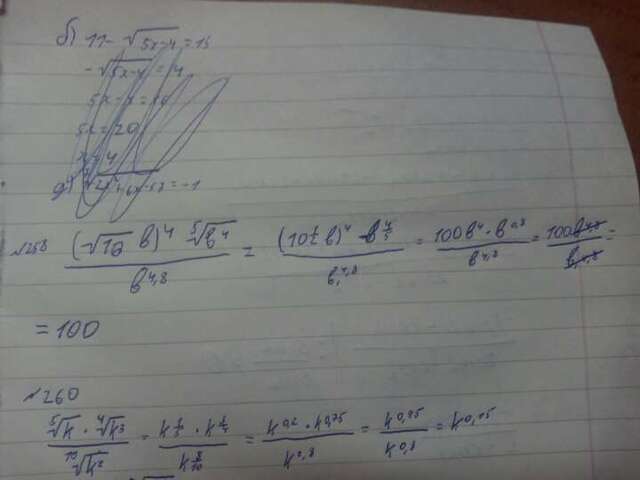 б) 11-√5x-4=15
-√5x-4=4
5x-4=16
5x=20
x=4
√2x²+6x-57=-1
№258 (-√10 b)⁴ ⁵√b⁴ / b⁴,⁸ = (10½ b)⁴ · b⅘ / b⁴,⁸ = 100b⁴·b⁰,⁸ / b⁴,⁸ = 100b⁴,⁸ / b⁴,⁸ =
= 100
№260
⁵√k · ⁴√k³ / ¹⁰√k² = k⅕ · k¾ / k^8/10 = k⁰,²·k⁰,⁷⁵ / k⁰,⁸ = k⁰,⁹⁵ / k⁰,⁸ = k⁰,¹⁵